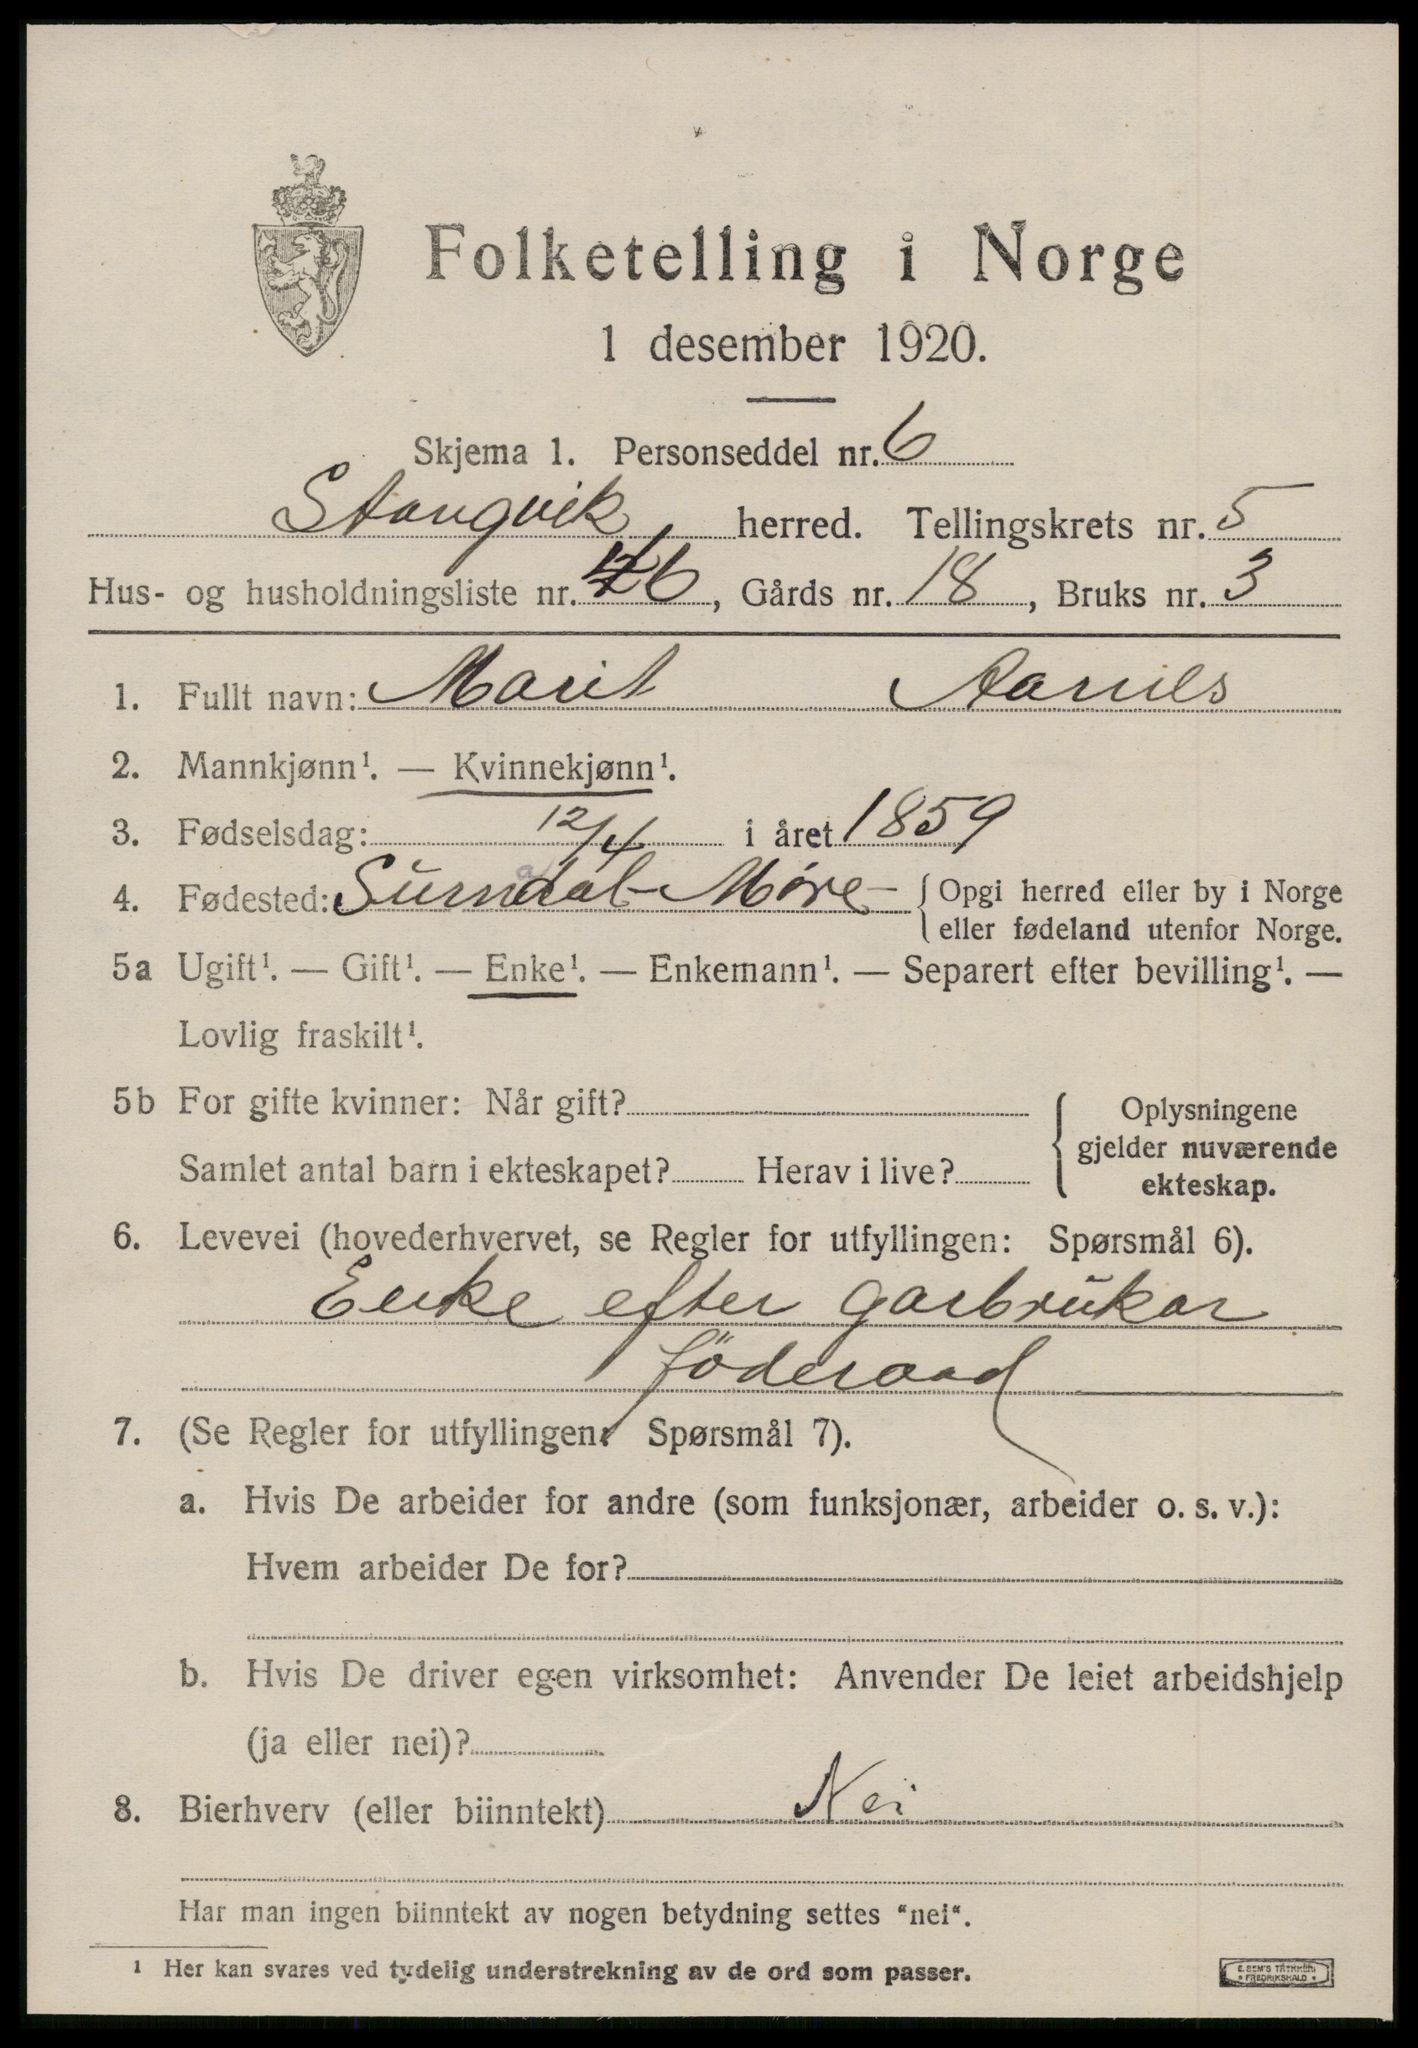 Folketelling i Norge
1 desember 1920.
Skjema 1. Personseddel nr. 6
Stangvik herred. Tellingskrets nr. 5
Hus- og husholdningsliste nr. 6, Gårds nr. 18, Bruks nr. 3
1. Fullt navn: Marit Aarnes
2. Mannkjønn¹. — Kvinnekjønn¹.
3. Fødselsdag: 12/4 i året 1859
4. Fødested: Surndal - Møre - { Opgi herred eller by i Norge
eller fødeland utenfor Norge.
5a Ugift¹. — Gift¹. — Enke¹. — Enkemann¹. — Separert efter bevilling¹. —
Lovlig fraskilt¹.
5b For gifte kvinner: Når gift?
Samlet antal barn i ekteskapet? Herav i live?
{ Oplysningene
gjelder nuværende
ekteskap.
6. Levevei (hovederhvervet, se Regler for utfyllingen: Spørsmål 6).
Enke efter garbrukar
föderaad
7. (Se Regler for utfyllingen: Spørsmål 7).
a. Hvis De arbeider for andre (som funksjonær, arbeider o. s. v.):
Hvem arbeider De for?
b. Hvis De driver egen virksomhet: Anvender De leiet arbeidshjelp
(ja eller nei)?
8. Bierhverv (eller biinntekt) Nei
Har man ingen biinntekt av nogen betydning settes "nei".
¹ Her kan svares ved tydelig understrekning av de ord som passer.
E. SEM'S TRYKKERI
• FREDRIKSHALD •